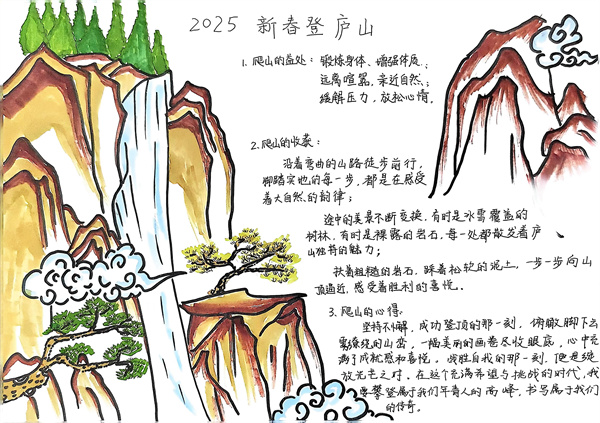 2025 新春登庐山
1. 爬山的益处：锻炼身体、增强体质；
远离喧嚣，亲近自然；
缓解压力，放松心情。
2. 爬山的收获：
沿着弯曲的山路徒步前行，
脚踏实地的每一步，都是在感受
着大自然的韵律；
途中的美景不断变换，有时是冰雪覆盖的
树林，有时是裸露的岩石，每一处都散发着庐
山独特的魅力；
扶着粗糙的岩石，踩着松软的泥土，一步一步向山
顶逼近，感受着胜利的喜悦。
3. 爬山的心得：
坚持不懈，成功登顶的那一刻，俯瞰脚下云
雾缭绕的山峦，一幅美丽的画卷尽收眼底，心中充
满了成就感和喜悦。战胜自我的那一刻，便是绽
放光芒之时。在这个充满希望与挑战的时代，我
要攀登属于我们年青人的高峰，书写属于我们
的传奇。